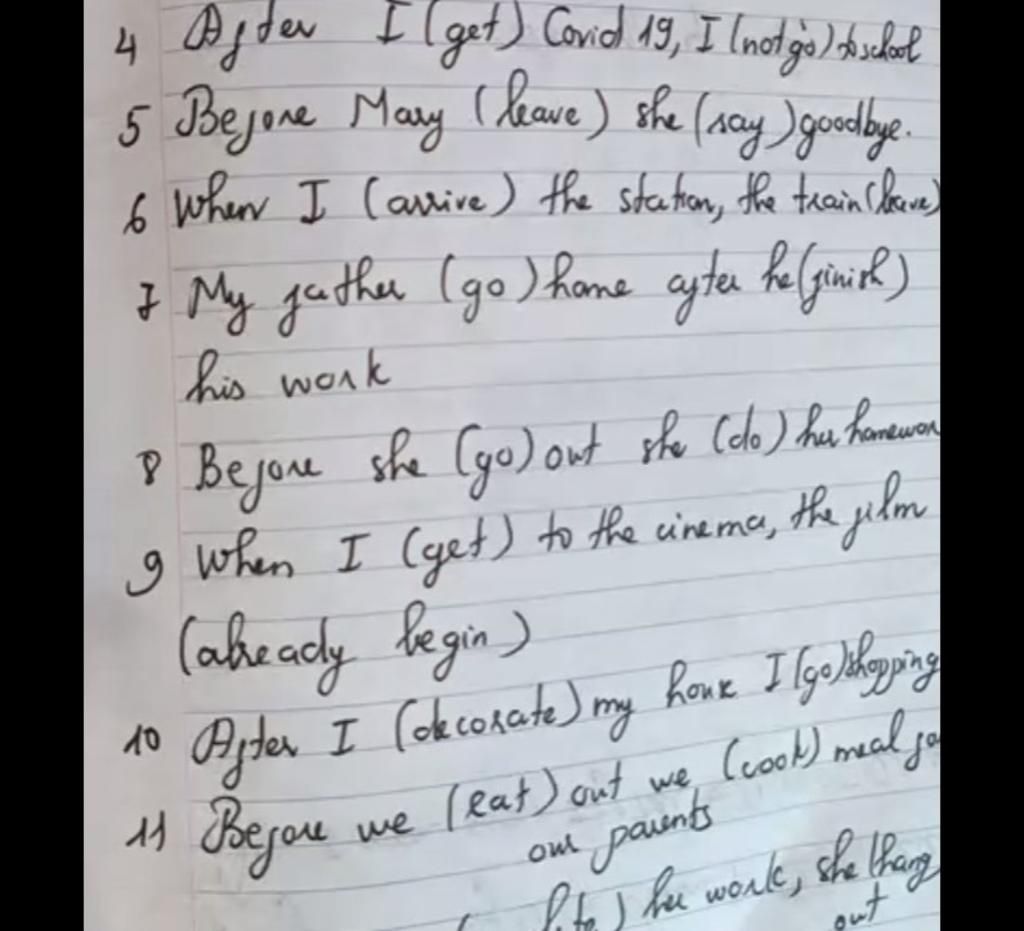 4 After I (get) Covid 19, I (not go) to school
5 Before Mary (leave) she (say) goodbye.
6 When I (arrive) the station, the train (leave)
7 My father (go) home after he (finish)
his work
8 Before she (go) out she (do) her homewor
9 When I (get) to the cinema, the film
(already begin)
10 After I (decorate) my house I (go) shopping
11 Before we (eat) out we (cook) meal fo
our parents
) her work, she (hang
out